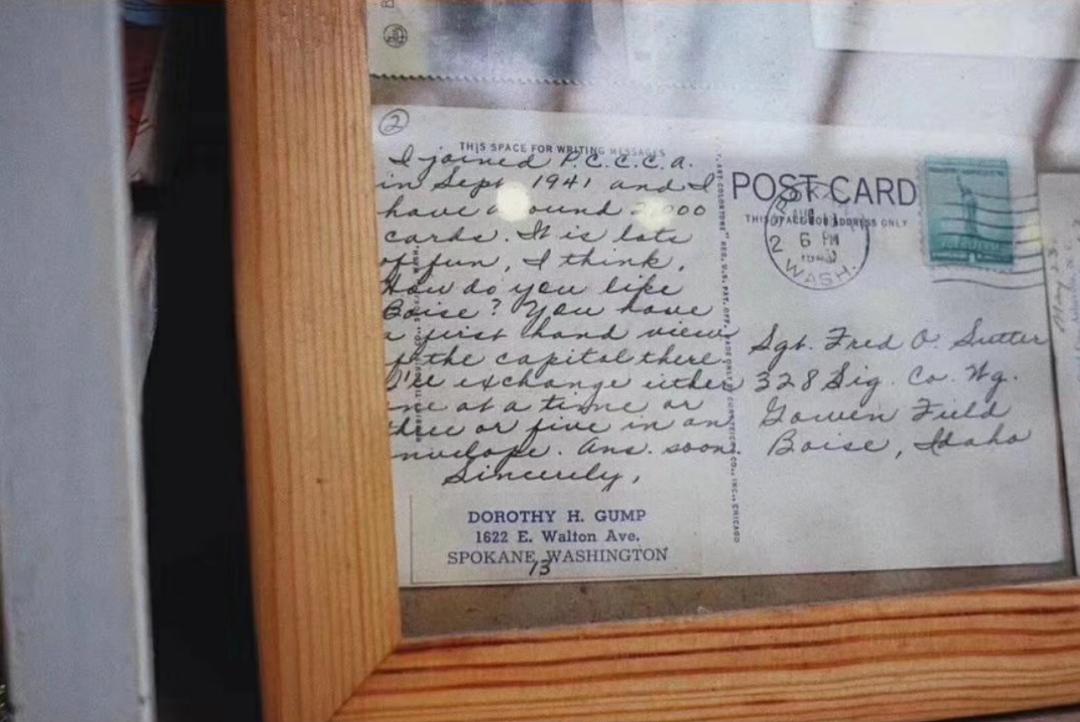 2
THIS SPACE FOR WRITING MESSAGES
I joined P.C.C.C.A.
in Sept 1941 and I
have around 2,000
cards. It is lots
of fun, I think.
How do you like
Boise? You have
a first hand view
of the capitol there.
I'll exchange either
one at a time or
three or five in an
envelope. Ans. soon.
Sincerely,
DOROTHY H. GUMP
1622 E. Walton Ave.
SPOKANE, WASHINGTON
13
POST CARD
THIS SPACE FOR ADDRESS ONLY
6 PM
WASH.
Sgt. Fred O. Sutter
328 Sig. Co. Wg.
Gowen Field
Boise, Idaho
May 23